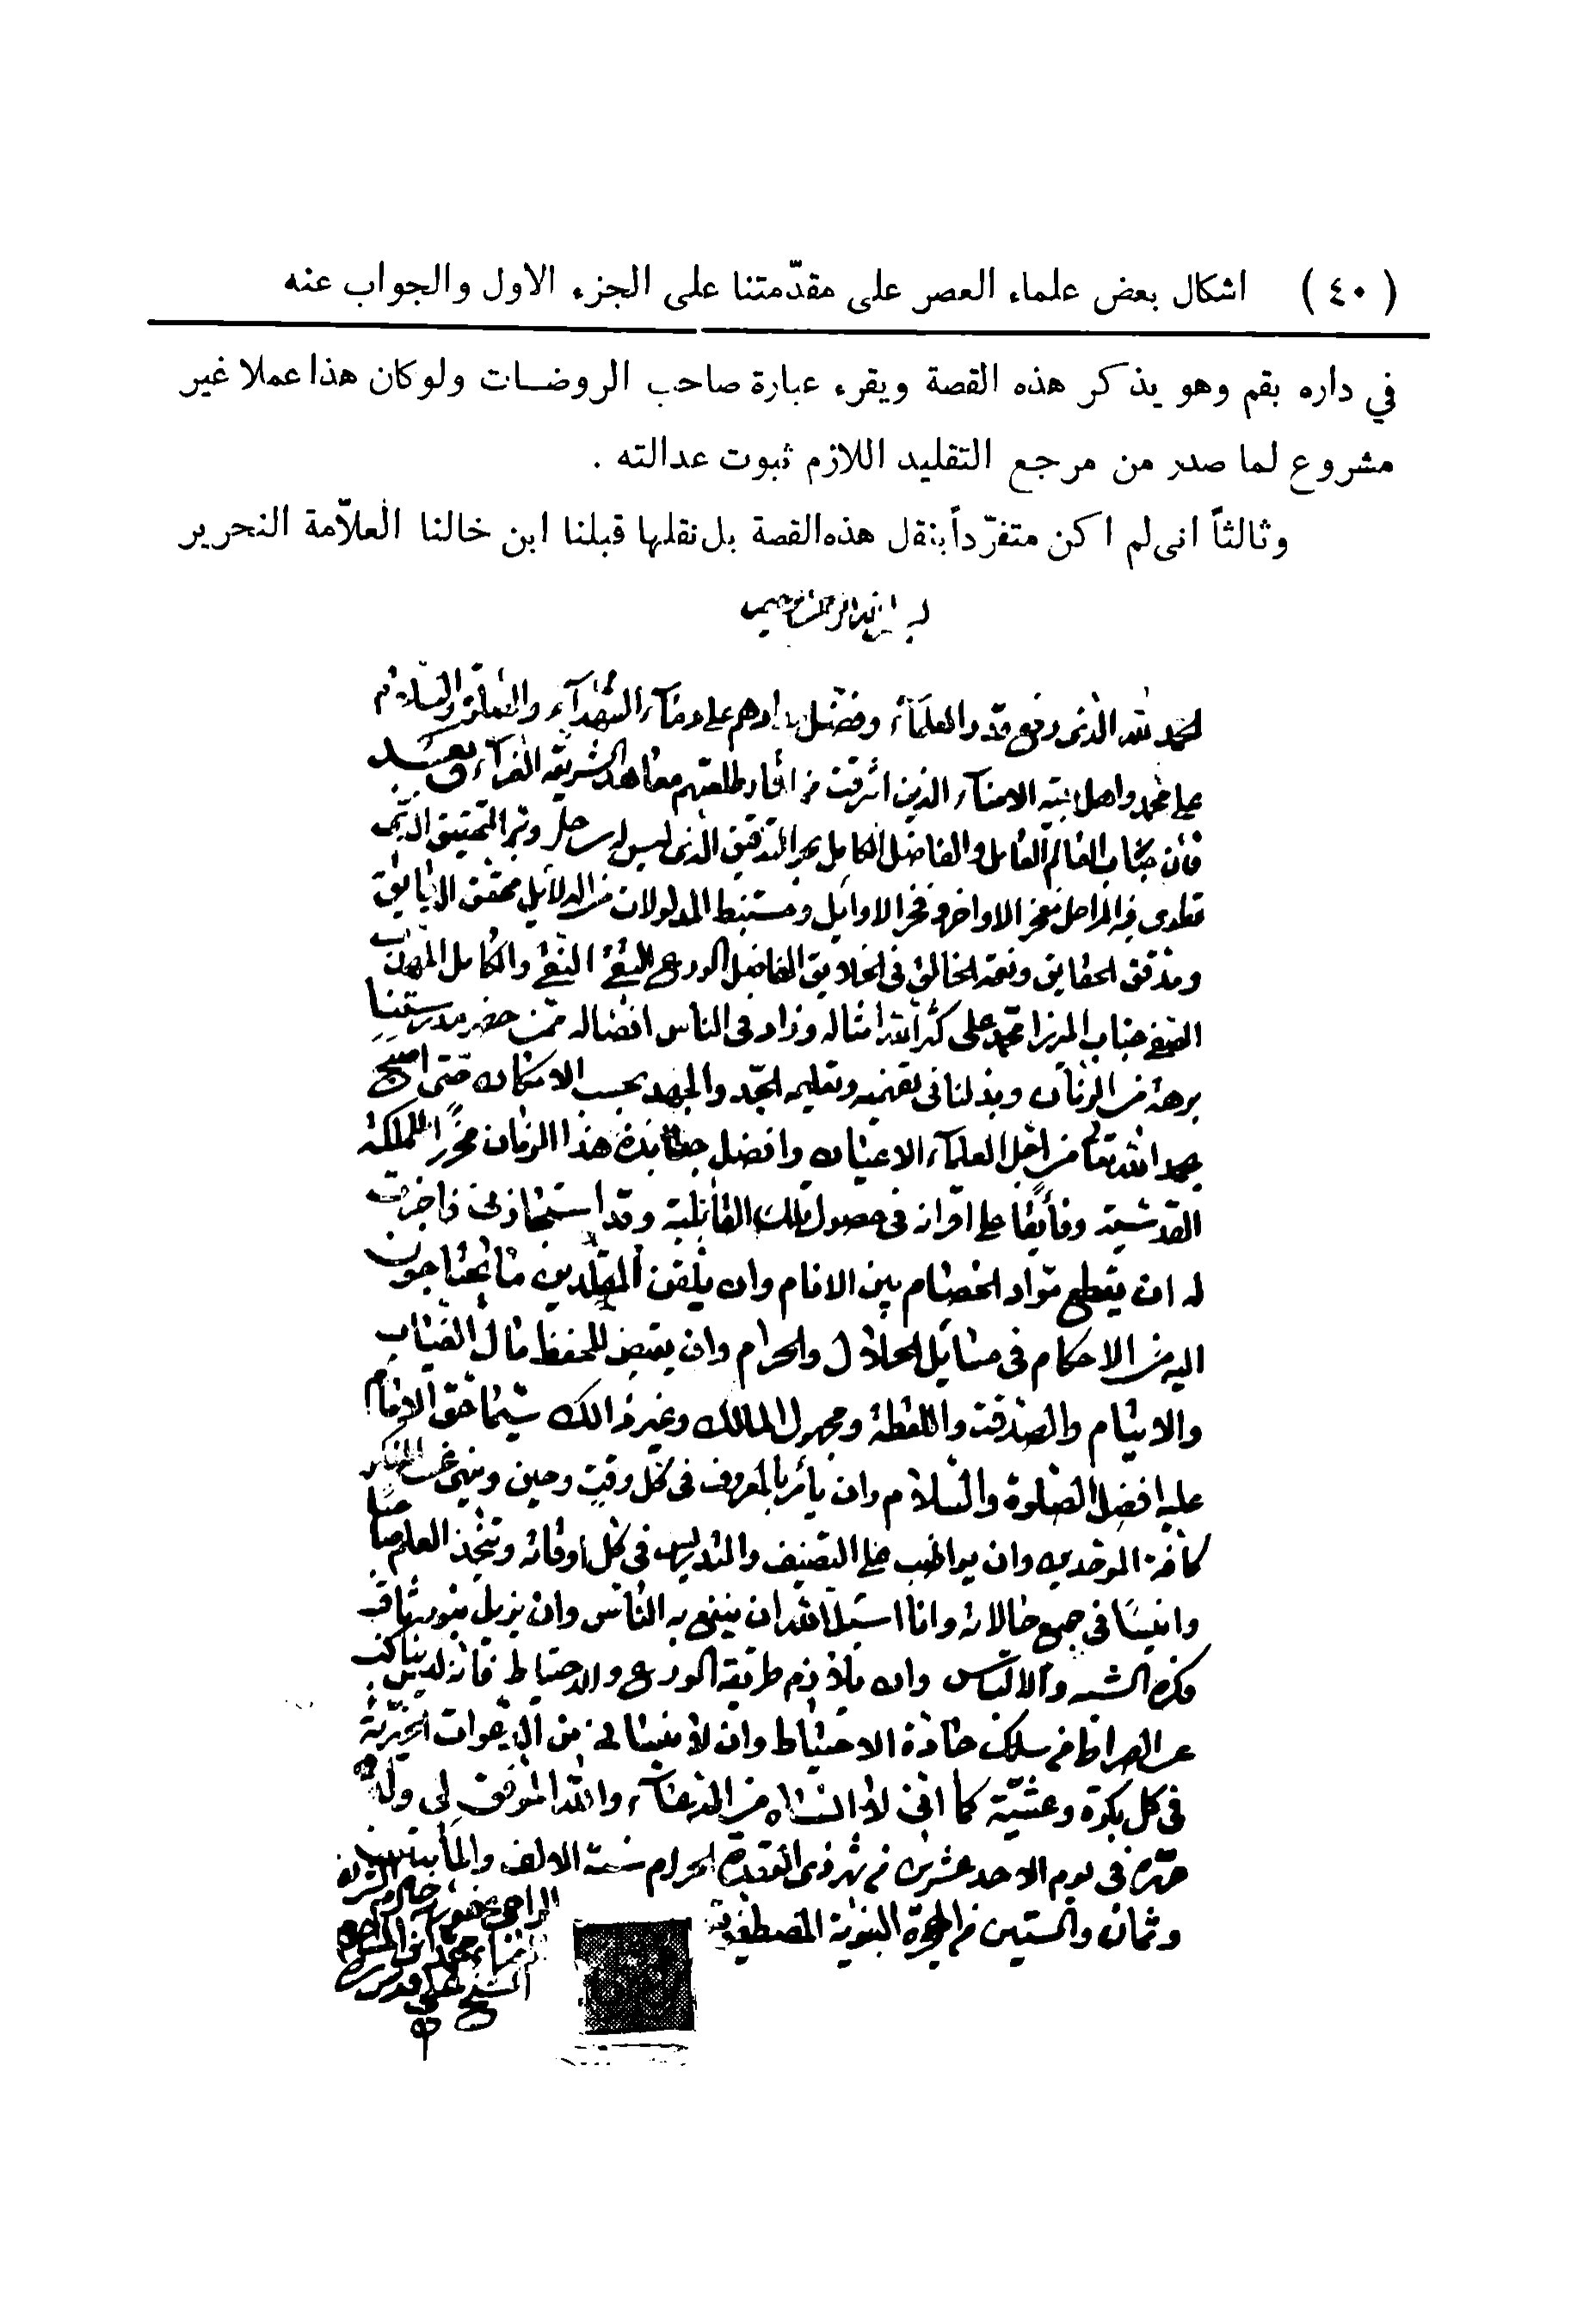 (٤٠) اشكال بعض علماء العصر على مقدّمتنا على الجزء الاول والجواب عنه
في داره بقم وهو يذكر هذه القصة ويقرء عبارة صاحب الروضات ولوكان هذا عملا غير
مشروع لما صدر من مرجع التقليد اللازم ثبوت عدالته .
وثالثاً انى لم اكن متفرّداً بنقل هذه القصة بل نقلها قبلنا ابن خالنا العلاّمة النحرير
بسم الله الرحمن الرحيم
الحمد لله الذى رفع قدر العلمآء وفضّل مدادهم على دمآء الشهدآء والصلوة والسلام
على محمد واهل بيته الامنآء الذين اشرقت من طلعتهم معاهد الشريعة الغرآء وبعد
فان جناب العالم العامل والفاضل الكامل بحر التدقيق الذى ليس له ساحل وبر التحقيق الذى
تطوى فيه المراحل مفخر الاواخر وفخر الاوايل ومستنبط المدلولات من الدلايل محقق الدقايق
ومدقق الحقايق ونعمة الخالق فى الخلايق الفاضل الورع التقى النقى والكامل المهذب
الصفى جناب الميرزا محمد على كثر الله امثاله وزاد فى الناس افضاله ممن حضر مدرستنا
برهة من الزمان وبذلنا فى تفهيمه وتعليمه الجد والجهد بحسب الامكان حتى اصبح
بحمد الله تعالى من اجل العلمآء الاعيان وافضل جهابذة هذا الزمان محرزا للملكة
القدسية وفايقا على اقرانه فى حصول تلك القابلية وقد استجازنى فاجزت
له ان يقطع مواد الخصام بين الانام وان يلقن المقلدين ما يحتاجون
اليه من الاحكام فى مسايل الحلال والحرام وان يقبض للحفظ مال الغياب
والايتام والصدقة واللقطة ومجهول المالك وغير ذالك سيما حق الامام
عليه افضل الصلوة والسلام وان يأمر بالمعروف فى كل وقت وحين وينهى عن المنكر
كافة الموحدين وان يواظب على التصنيف والتدريس فى كل اوقاته ويتخذ العلم صاحبا
وانيسا فى جميع حالاته وانا اسئل الله ان ينفع به الناس وان يزيل بنور ثاقب
فكره الشبه والالتباس وان يلازم طريقة الورع والاحتياط فانه ليس بناكب
عن الصراط من سلك جادة الاحتياط وان لا ينسانى من الدعوات الخيرية
فى كل بكرة وعشية كما انى لا انساه من الدعآء والله الموفق لى وله
حرره فى يوم الاحد عشرين من شهر ذى القعدة الحرام سنة الالف والمأتين
وثمان والستين من الهجرة النبوية المصطفوية
الراجى عفو ربه
محمد ابن المرحوم
الشيخ على قدس سره